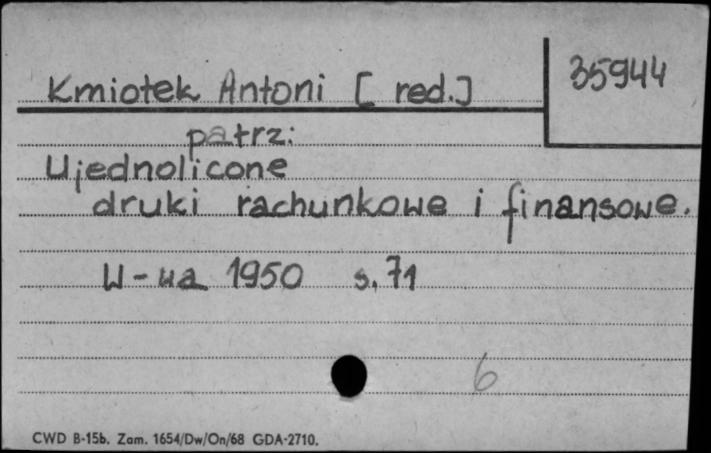 Kmiotek Antoni [red.]
35944
patrz:
Ujednolicone
druki rachunkowe i finansowe.
W-wa 1950 s. 71
6
CWD B-15b. Zam. 1654/Dw/On/68 GDA-2710.